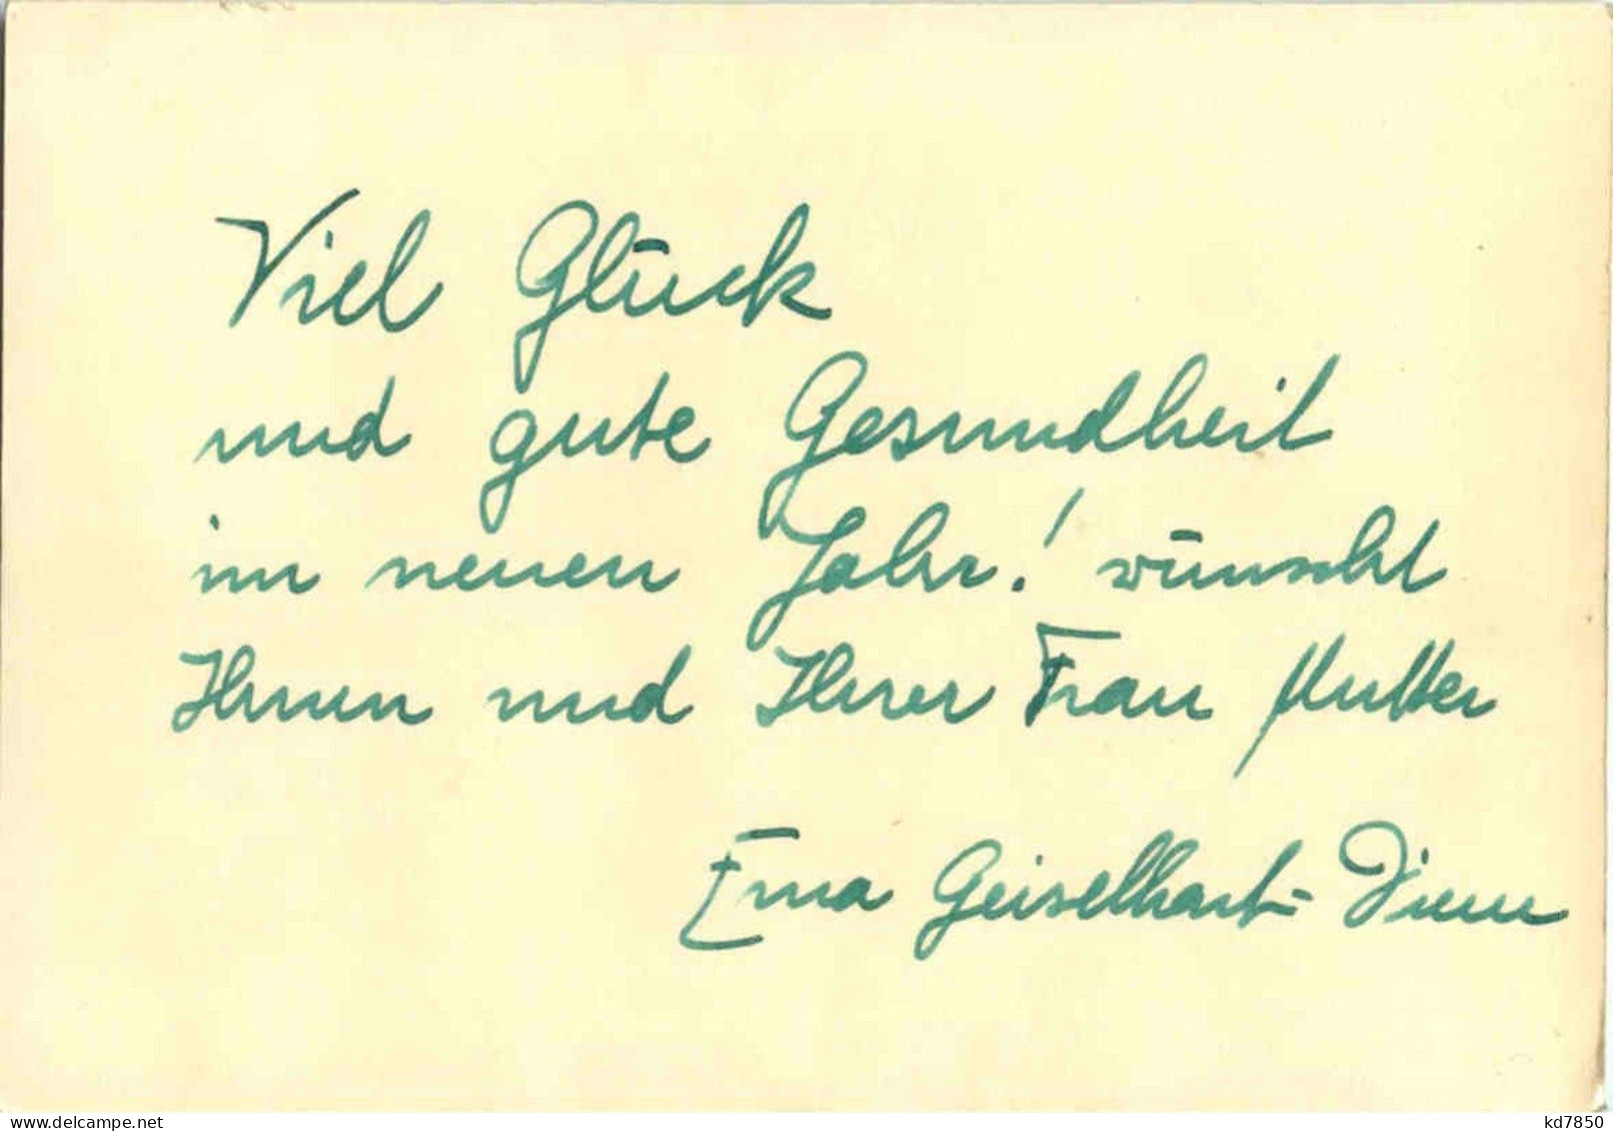 Viel Glück
und gute Gesundheit
im neuen Jahr! wünscht
Ihnen und Ihrer Frau Mutter
Erna Geiselhart-Diem
www.delcampe.net
kd7850